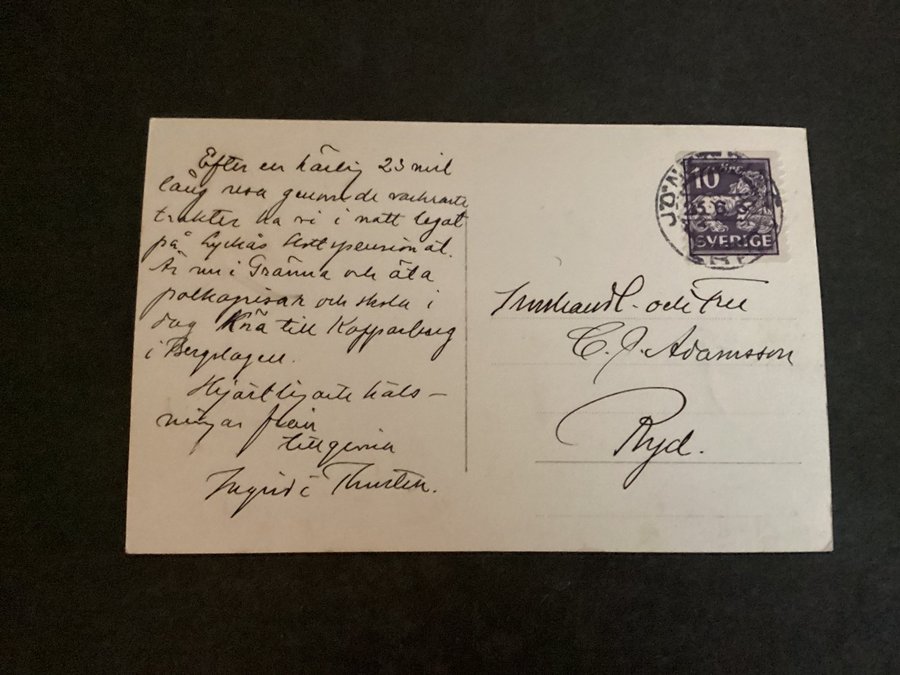 Efter en härlig 23 mil
lång resa genom de vackraste
trakter ha vi i natt legat
på Lyckås slottspensionat.
Är nu i Gränna och äta
polkagrisar och skola i
dag köra till Kopparberg
i Bergslagen.
Hjärtligaste häls-
ningar från
tillgivna
Ingrid & Thursten.
10
SVERIGE
JÖN
och Fru
C. J. Adamsson
Ryd.